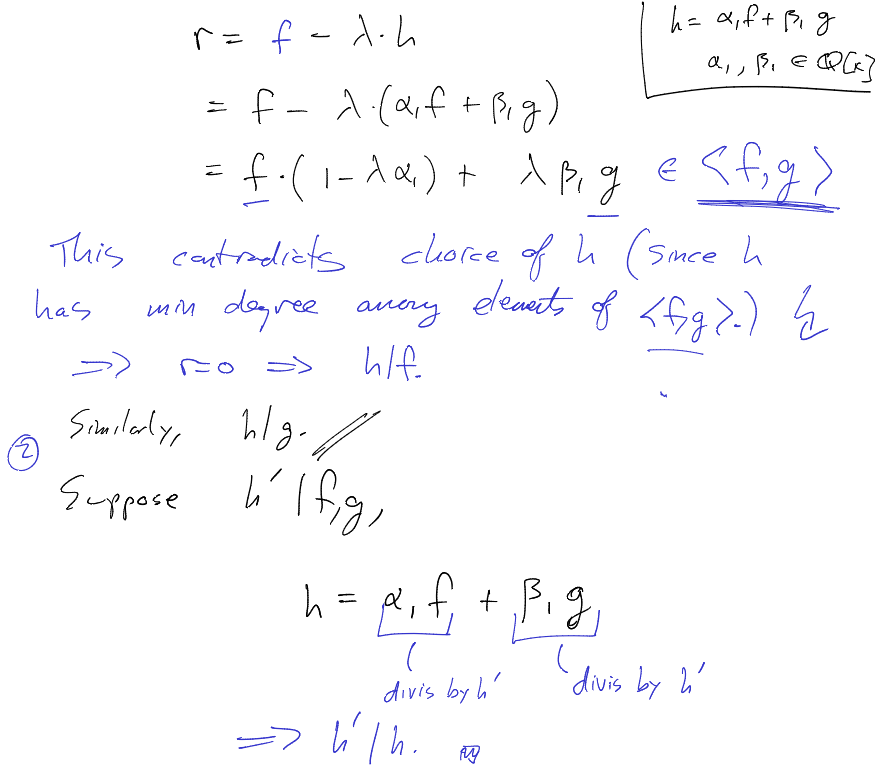 r = f − λ·h
h = α₁f + β₁ g
α₁, β₁ ∈ ℚ[x]
= f − λ·(α₁f + β₁g)
= f·(1 − λα₁) + λ β₁ g ∈ <f,g>
This contradicts choice of h (since h
has min degree among elements of <f,g>.) ↯
⇒ r=0 ⇒ h/f.
Similarly, h/g. //
② Suppose h′ | f,g,
h = α₁f + β₁g
divis by h′ divis by h′
⇒ h′/h.